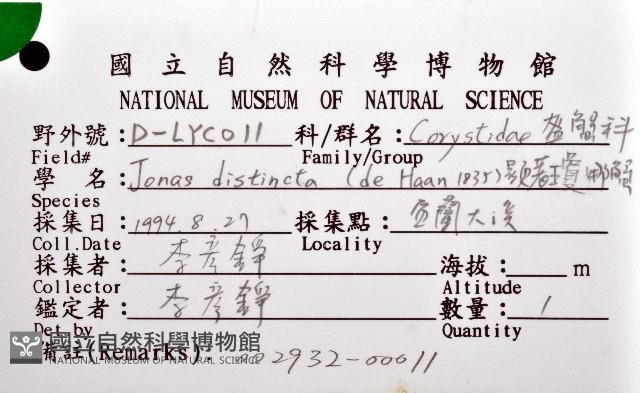 國立自然科學博物館
NATIONAL MUSEUM OF NATURAL SCIENCE
野外號:D-LYC011 科/群名:Corystidae 盔蟹科
Field# Family/Group
學 名:Jonas distincta (de Haan 1835) 顯著瓊娜蟹
Species
採集日:1994.8.27 採集點:宜蘭大溪
Coll.Date Locality
採集者:李彥錚 海拔: m
Collector Altitude
鑑定者:李彥錚 數量:1
Det by Quantity
備註(Remarks): 002932-00011
國立自然科學博物館
NATIONAL MUSEUM OF NATURAL SCIENCE